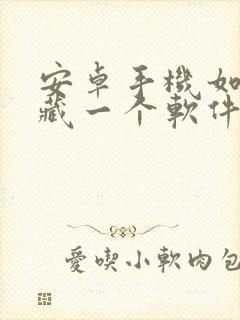 安卓手機如
藏一个軟件
愛喫小軟肉包